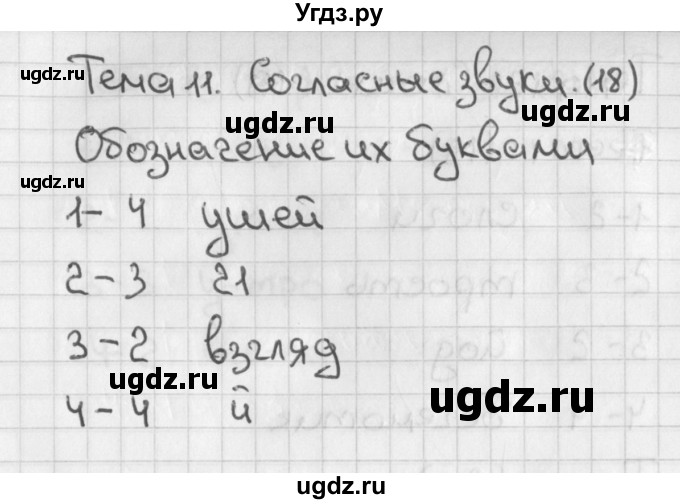 Угдз.ру
ugdz.ru
Тема 11. Согласные звуки. (18)
ugdz.ru
ugdz.ru
Обозначение их буквами
ugdz.ru
1 - 4 ушей
2 - 3 21
3 - 2 взгляд
ugdz.ru
ugdz.ru
ugdz.ru
4 - 4 й
ugdz.ru